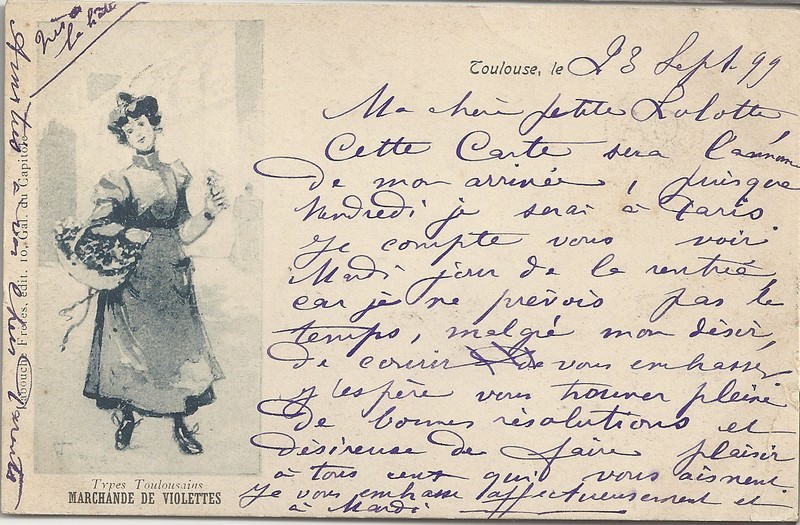 Toulouse, le 23 Sept. 99
Ma chère petite Lolotte
Cette Carte sera l'annonce
de mon arrivée, puisque
Vendredi je serai à Paris.
Je compte vous voir
Mardi jour de la rentrée,
car je ne prévois pas le
temps, malgré mon désir,
de courir vous embrasser
J'espère vous trouver pleine
de bonnes résolutions et
désireuse de faire plaisir
à tous ceux qui vous aiment
Je vous embrasse affectueusement et
à Mardi
la hâte
Amitiés à vos chers parents
Labouche Frères, édit. 10, Gal. du Capitole
Types Toulousains
MARCHANDE DE VIOLETTES